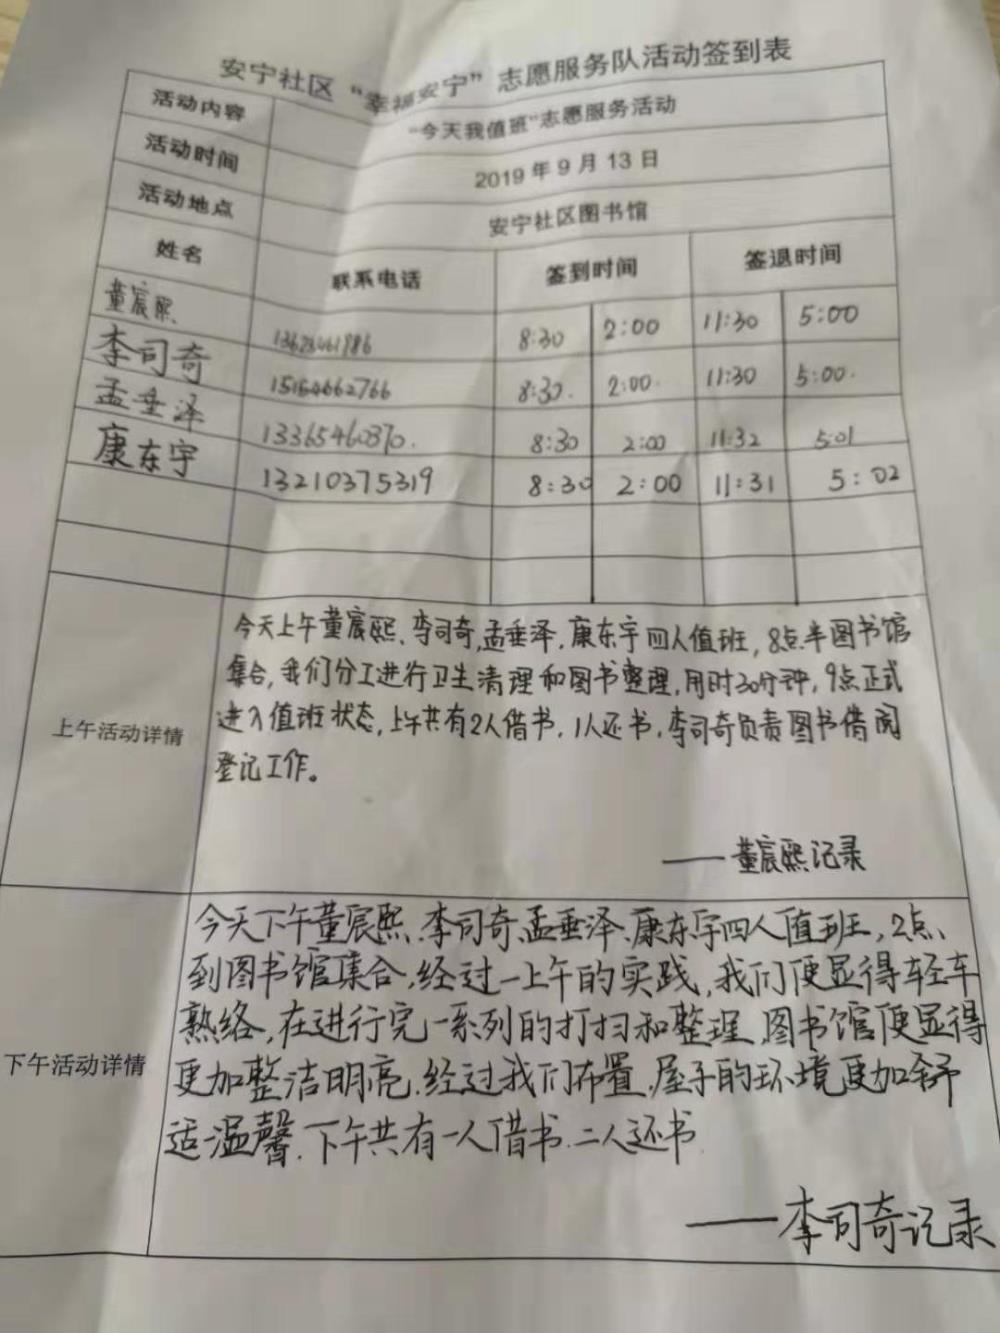 安宁社区“幸福安宁”志愿服务队活动签到表
活动内容 “今天我值班”志愿服务活动
活动时间 2019年9月13日
活动地点 安宁社区图书馆
姓名 联系电话 签到时间 签退时间
董宸熙 8:30 2:00 11:30 5:00
李司奇 15164662766 8:30. 2:00. 11:30 5:00.
孟垂泽 13365460370. 8:30 2:00 11:32 5:01
康东宇 13210375319 8:30 2:00 11:31 5:02
上午活动详情
今天上午董宸熙、李司奇,孟垂泽,康东宇四人值班,8点半图书馆
集合,我们分工进行卫生清理和图书整理,用时30分钟,9点正式
进入值班状态,上午共有2人借书,1人还书,李司奇负责图书借阅
登记工作。
——董宸熙记录
下午活动详情
今天下午董宸熙、李司奇、孟垂泽、康东宇四人值班,2点
到图书馆集合,经过一上午的实践,我们便显得轻车
熟络,在进行完一系列的打扫和整理,图书馆便显得
更加整洁明亮,经过我们布置,屋子的环境更加舒
适温馨.下午共有一人借书.二人还书
——李司奇记录